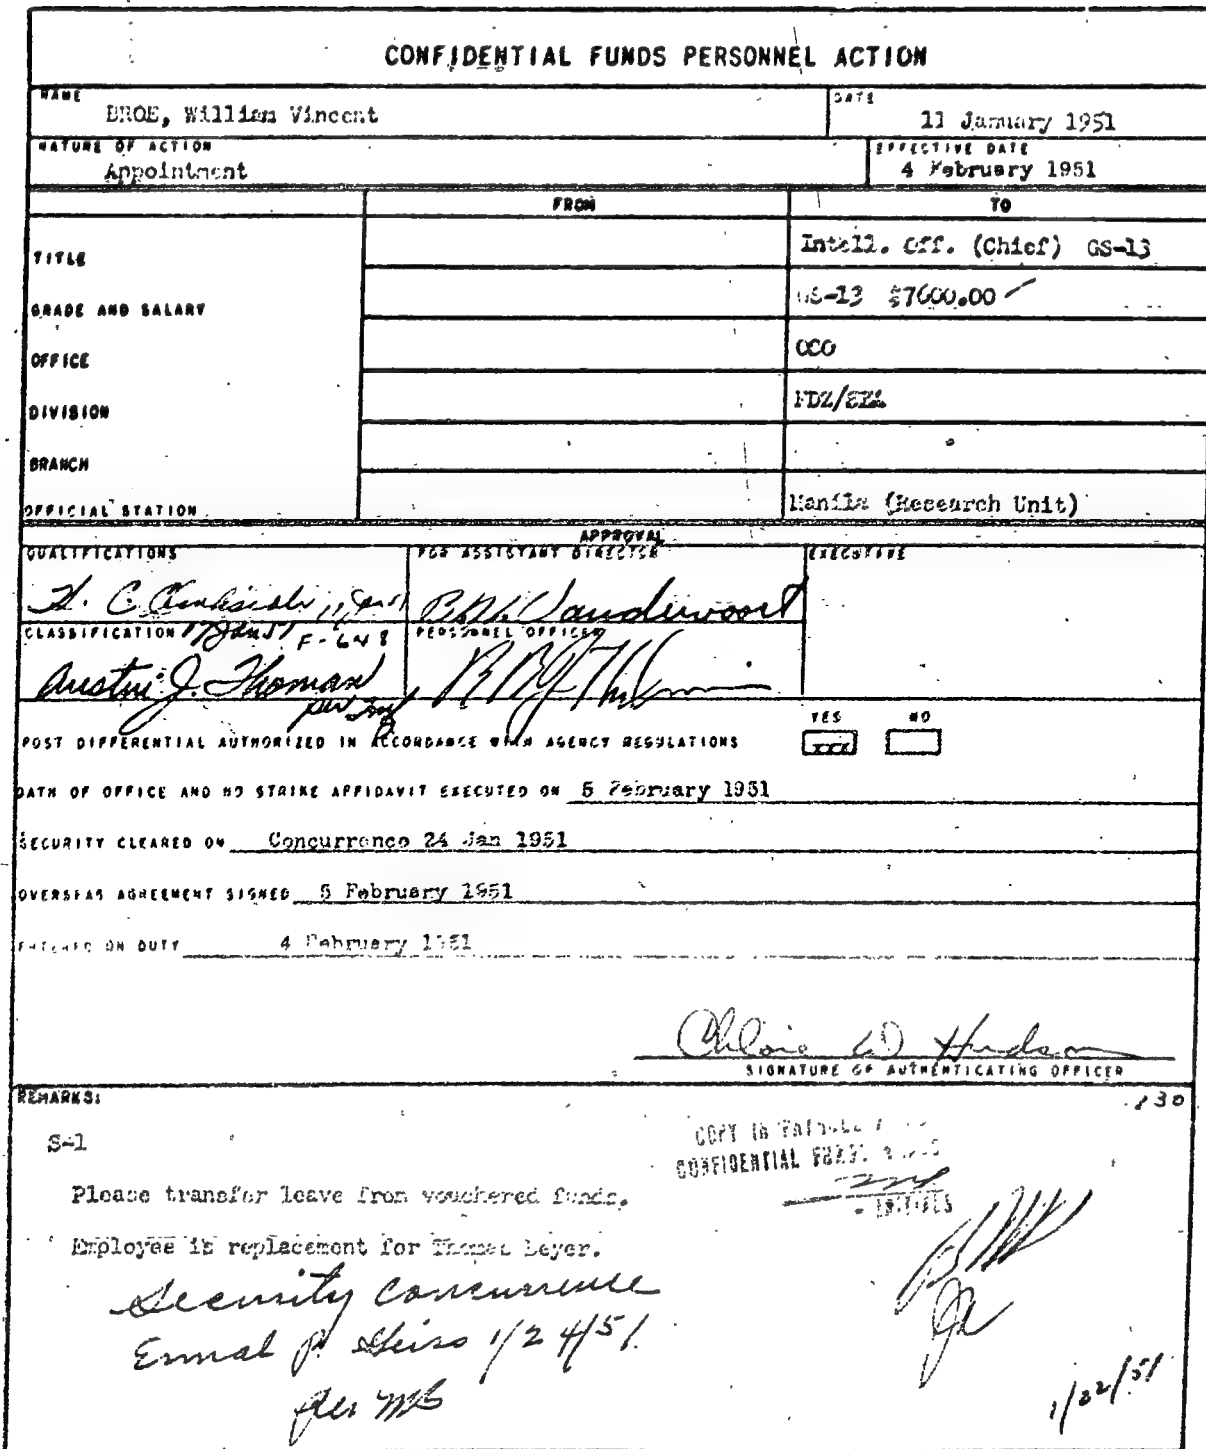 CONFIDENTIAL FUNDS PERSONNEL ACTION
NAME
BROE, William Vincent
DATE
11 January 1951
NATURE OF ACTION
Appointment
EFFECTIVE DATE
4 February 1951
FROM
TO
TITLE
Intell. Off. (Chief) GS-13
GRADE AND SALARY
GS-13 $7600.00
OFFICE
OSO
DIVISION
FDZ/
BRANCH
OFFICIAL STATION
Manila (Research Unit)
APPROVAL
QUALIFICATIONS
FOR ASSISTANT DIRECTOR
EXECUTIVE
H. C.
B.W. Vandervoort
CLASSIFICATION 17 Jan 51 F-648
PERSONNEL OFFICER
Austin J. Thoman
per
YES NO
POST DIFFERENTIAL AUTHORIZED IN ACCORDANCE WITH AGENCY REGULATIONS
xxx
OATH OF OFFICE AND NO STRIKE AFFIDAVIT EXECUTED ON 5 February 1951
SECURITY CLEARED ON Concurrence 24 Jan 1951
OVERSEAS AGREEMENT SIGNED 5 February 1951
ENTERED ON DUTY 4 February 1951
Chloie W Hudson
SIGNATURE OF AUTHENTICATING OFFICER
REMARKS:
S-1
COPY IN PAYROLL
CONFIDENTIAL FUNDS
INITIALS
Please transfer leave from vouchered funds.
Employee is replacement for Thomas Leyer.
Security Concurrence
Ermal P. Geiss 1/24/51.
per MB
1/22/51